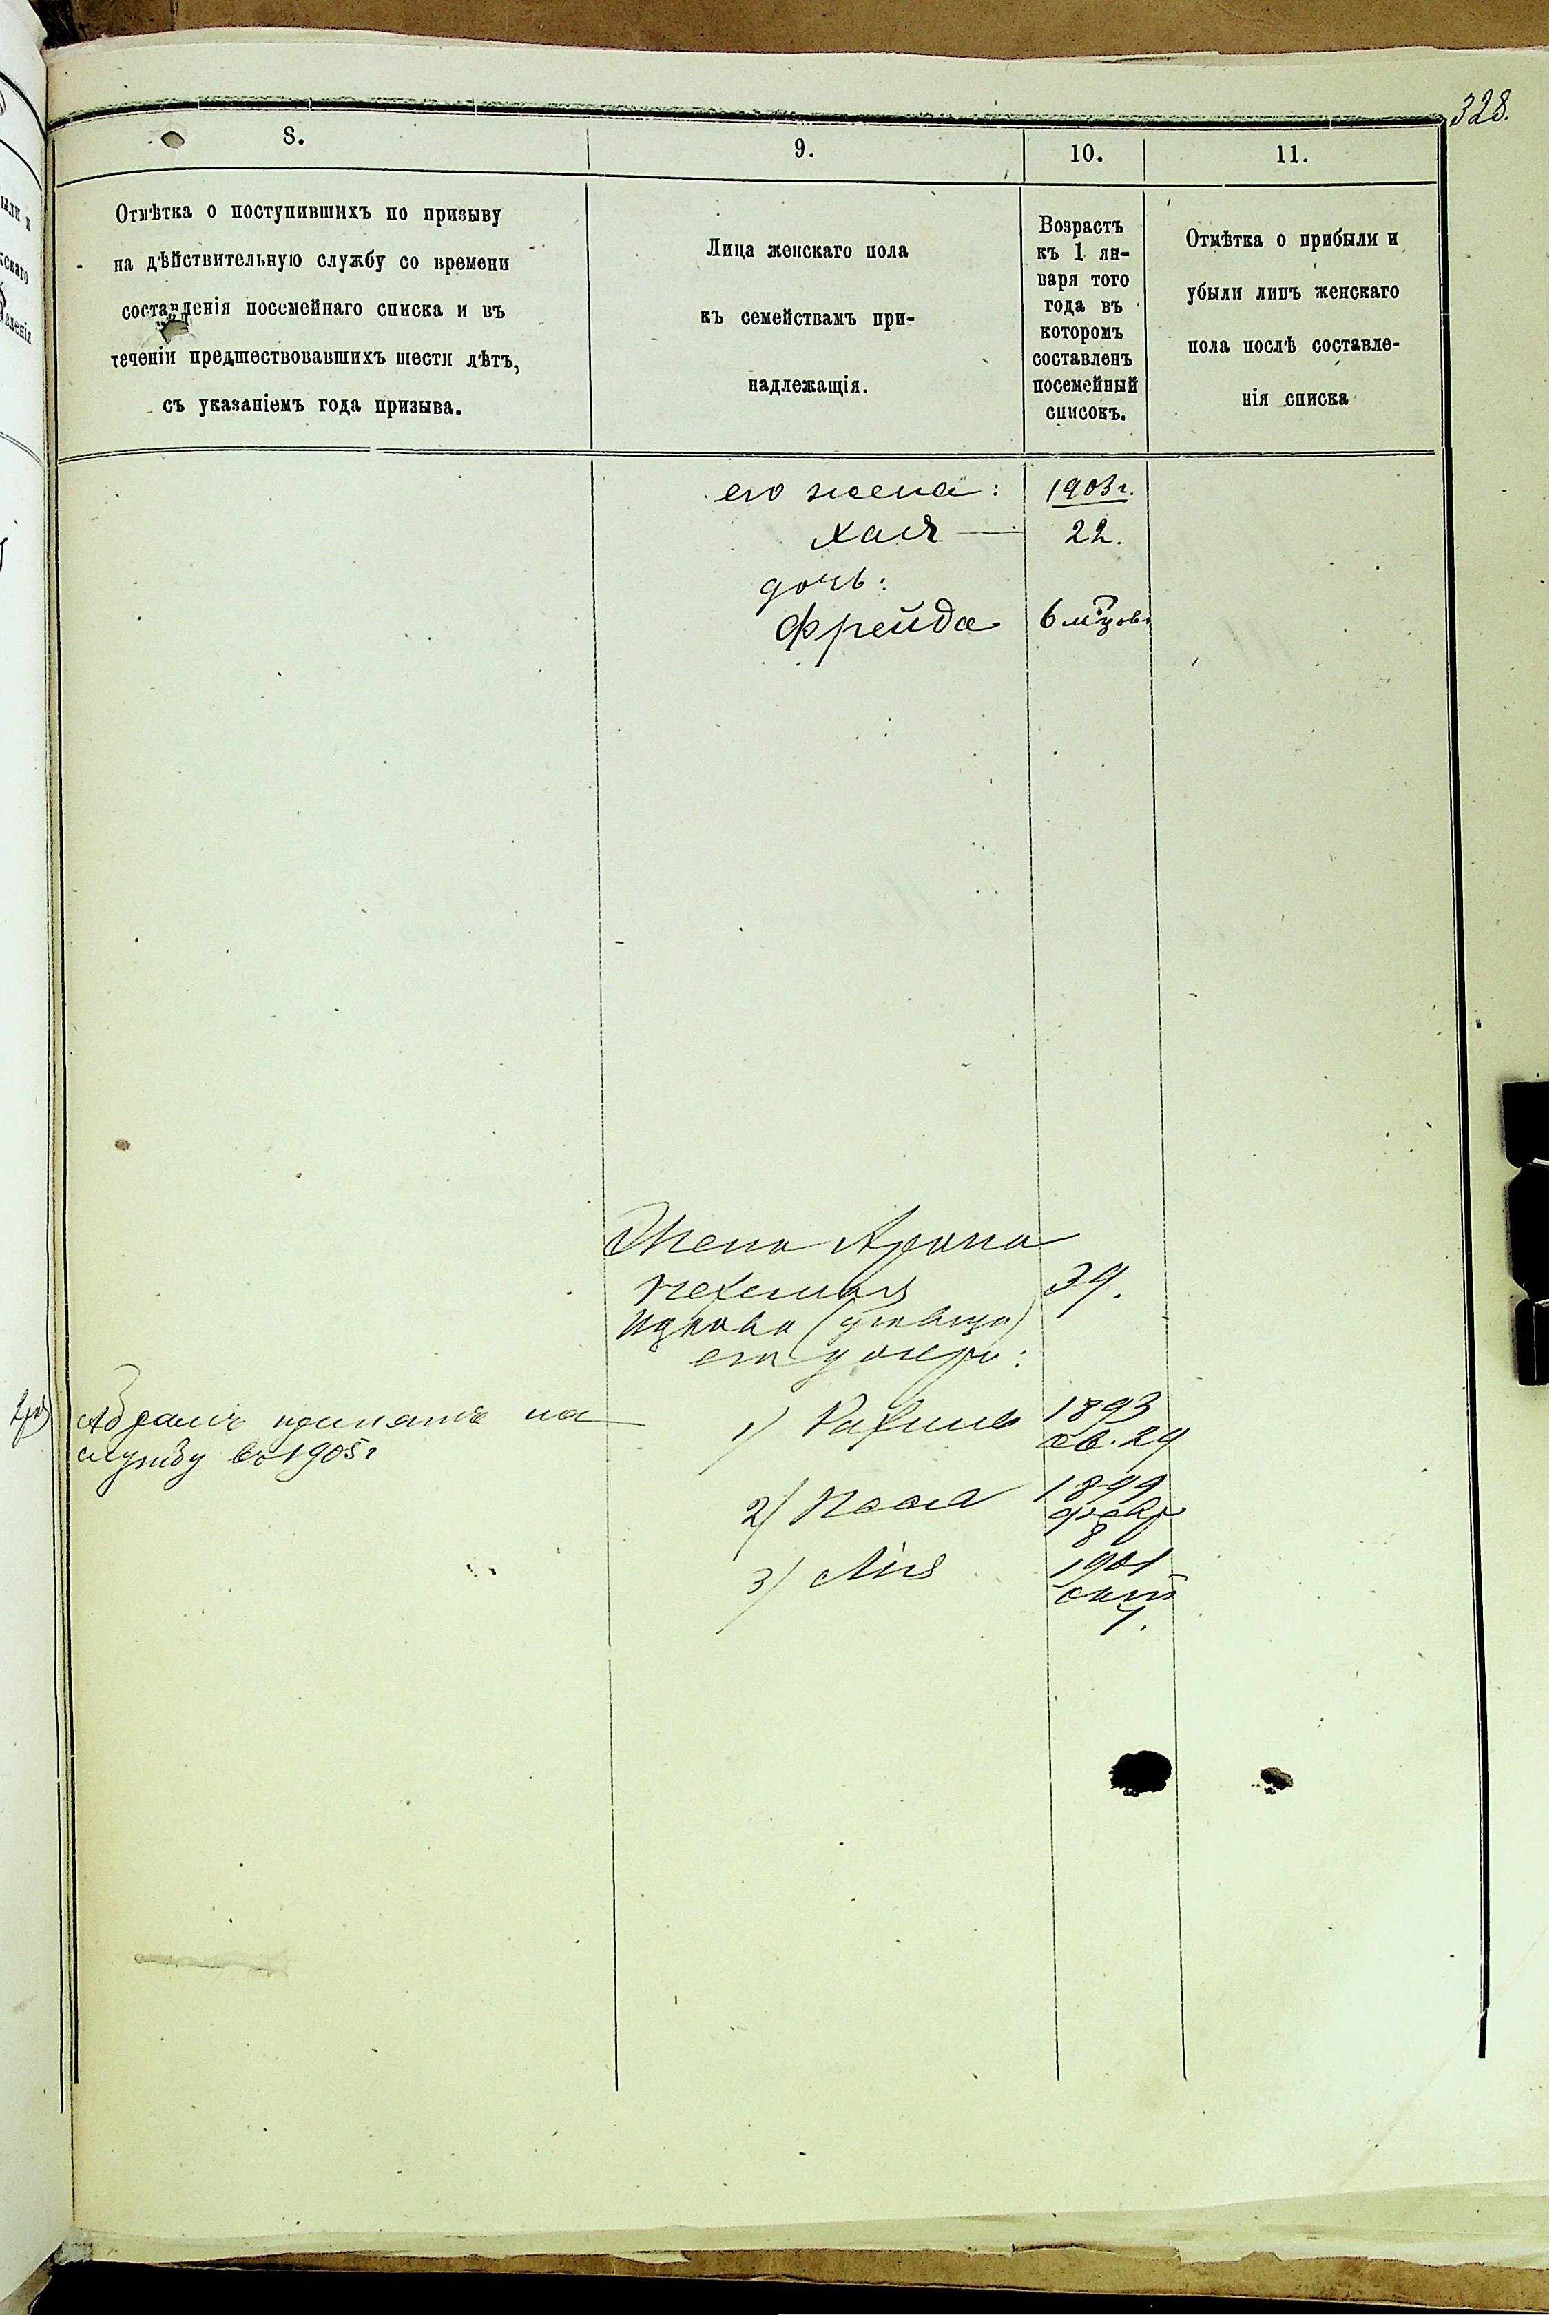 328.
8.
9.
10.
11.
Отмѣтка о поступившихъ по призыву
на дѣйствительную службу со времени
составленія посемейнаго списка и въ
теченіи предшествовавшихъ шести лѣтъ,
съ указаніемъ года призыва.
Лица женскаго пола
къ семействамъ при-
надлежащія.
Возрастъ
къ 1 ян-
варя того
года въ
которомъ
составленъ
посемейный
списокъ.
Отмѣтка о прибыли и
убыли лицъ женскаго
пола послѣ составле-
нія списка
его жена:
1903 г.
Хая —
22.
дочь:
Фрейда
6 мѣсяцовъ
Жена Арона
39.
Ицкова
его дочери:
Абрамъ принятъ на
службу въ 1905 г
1) Рахиль
1893
29
2)
1899
февр
8
3) Лія
1901